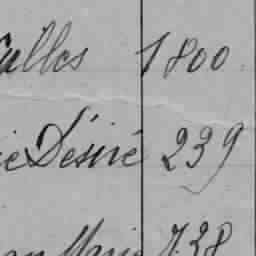 alles 1800
ie Désiré 239
Marie 738